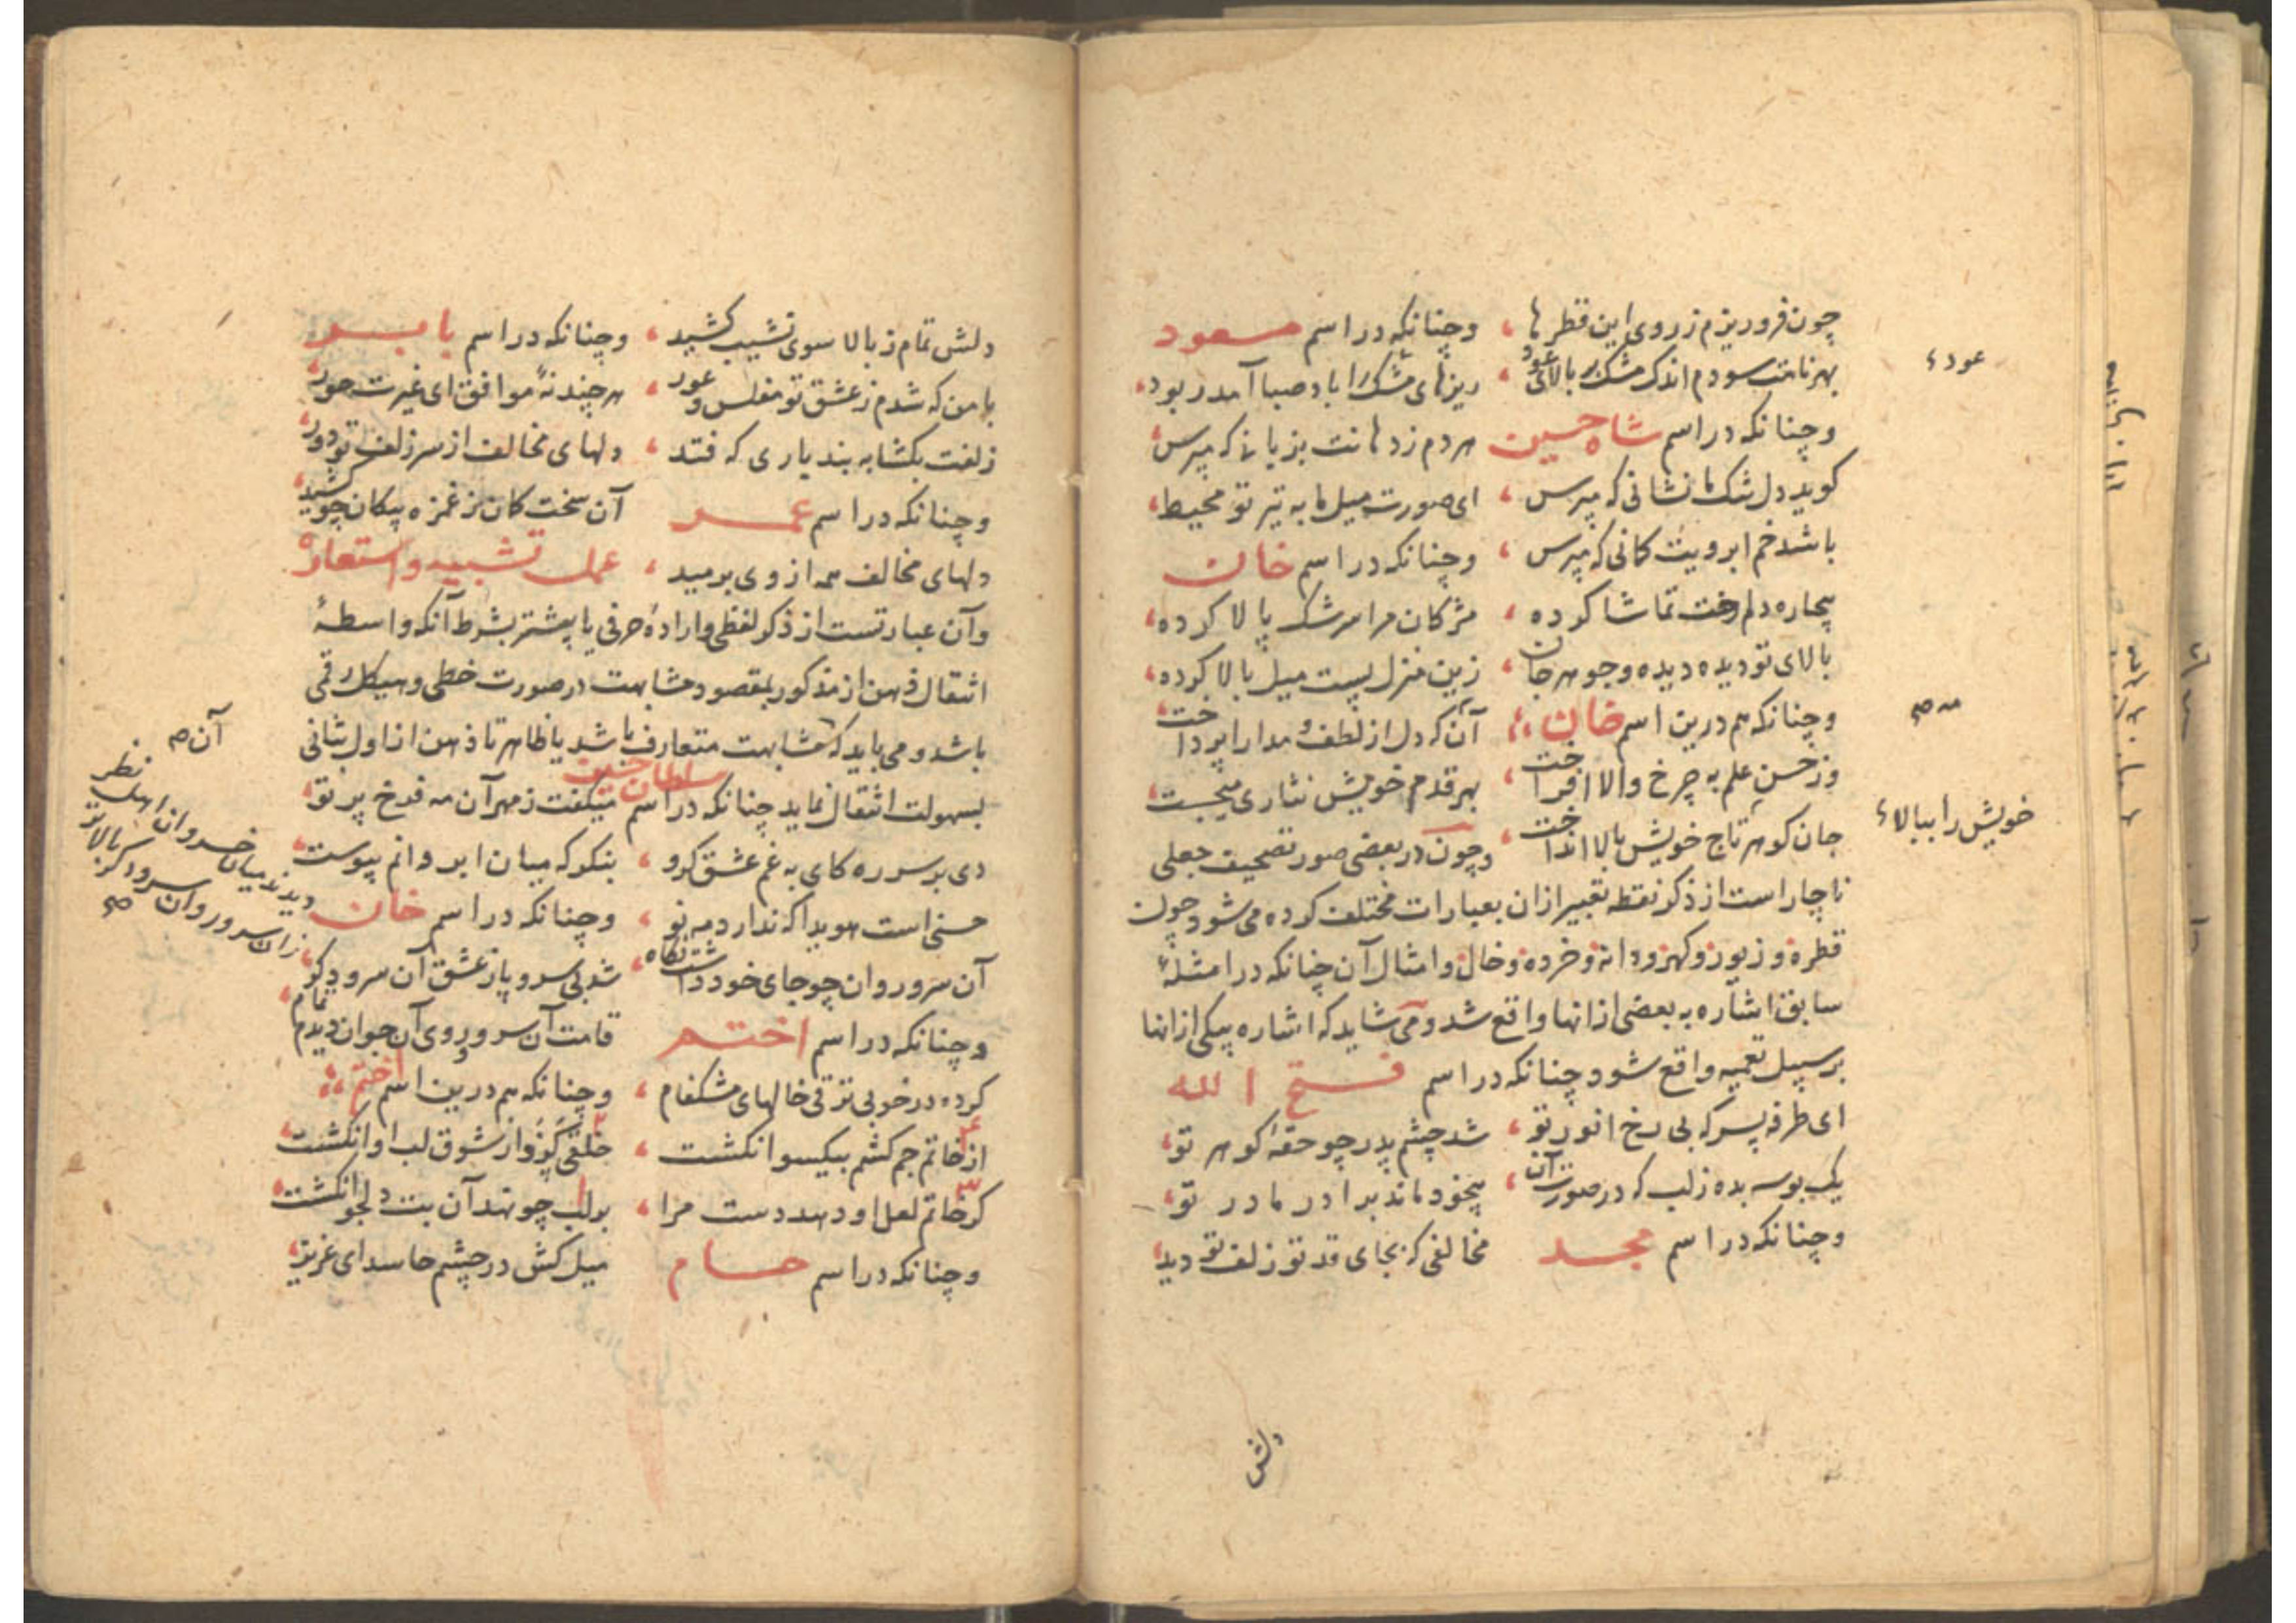 چون فروریزم ز روی این قطرها ، وچنانکه در اسم مسعود
بهر نامت سودم اندک مشک بر بالای عود ، ریزهای مشک را باد صبا آمد ربود
وچنانکه در اسم شاه حسین هردم ز دهانت بزبانی که مپرس
کوید دل شک ما نشانی که مپرس ، ای صورت میل ما به تیر تو محیط
باشد خم ابرویت کمانی که مپرس ، وچنانکه در اسم خان
بیچاره دلم رخت تماشا کرده ، مژکان مرا سرشک پالا کرده
بالای تو دیده دیده وجوهر جان ، زین منزل پست میل بالا کرده
وچنانکه هم درین اسم خان آن مه که دل از لطف و مدارا پرداخت
وز حسن علم به چرخ والا افراخت ، بهر قدم خویش نثاری میجست
جان کوهر تاج خویش بالا انداخت ، وچون در بعضی صور تصحیف جعلی
ناچار است از ذکر نقطه تعبیر ازان بعبارات مختلف کرده می شود چون
قطره و زیور و کهر و دانه و خرده و خال و امثال آن چنانکه در امثلهٔ
سابق اشاره به بعضی ازانها واقع شد و می شاید که اشاره بیکی ازانها
بر سبیل تعمیه واقع شود چنانکه در اسم فتح الله
ای طرفه پسر که بی رخ انور تو ، شد چشم پدر چو حقهٔ کوهر تو
یک بوسه بده ز لب که در صورت آن ، بیخود ماند برادر مادر تو
وچنانکه در اسم مجد مخالفی که بجای قد تو زلف تو دید
عود ء
مه صح
خویش را ببالاء
دلش
دلش تمام ز بالا سوی نشیب کشید ، وچنانکه در اسم بابر
با من که شدم ز عشق تو مفلس و عور ، هر چند نهٔ موافق ای غیرت حور
زلفت بکشا به بند یاری که فتد ، دلهای مخالف از سر زلف تو دور
وچنانکه در اسم عمر آن سخت کمان ز غمزه پیکان چو کشید
دلهای مخالف همه از وی برمید ، عمل تشبیه و استعاره
وآن عبارتست از ذکر لفظی و ارادهٔ حرفی یا بیشتر بشرط آنکه واسطهٔ
انتقال ذهن از مذکور بمقصود مشابهت در صورت خطی و هیکل رقمی
باشد و می باید که مشابهت متعارف باشد یا ظاهر تا ذهن از اول بثانی
بسهولت انتقال نماید چنانکه در اسم سلطان حسین میکفت ز مهر آن مه فرخ پر تو
دی بر سر ره کای به غم عشق کرو ، بنکر که میان ابروانم پیوست
حسنی است هویدا که ندارد مه نو ، وچنانکه در اسم خان
آن سرو روان چو جای خود داشت نکاه ، شد بی سر و پا ز عشق آن سرو دکر
وچنانکه در اسم اختم قامت آن سرو و روی آن جوان دیدم تمام
کرده در خوبی ترقی خالهای مشکفام ، وچنانکه هم درین اسم اختم
از خاتم جم کشم بیکسو انکشت ، خلقی کزد از شوق لب او انکشت
کر خاتم لعل او دهد دست مرا ، بر لب چو نهد آن بت دلجو انکشت
وچنانکه در اسم حسام میل کش در چشم حاسد ای عزیز
آن صح
دیدند میان خسروان اهل نظر
زان سرو روان سرو دکر بالاتر
صح